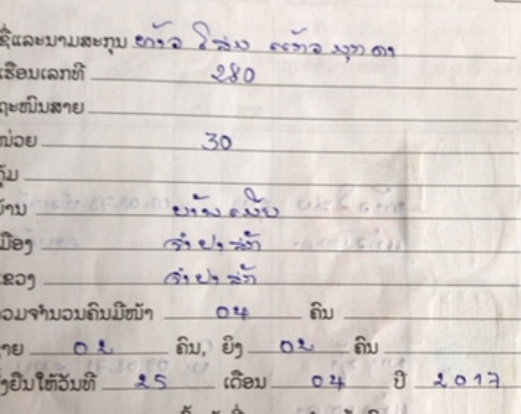 ຊື່ແລະນາມສະກຸນ ທ້າວ ໂສມ ແກ້ວ ມຸກດາ
ເຮືອນເລກທີ 280
ຖະໜົນສາຍ
ໜ່ວຍ 30
ຄຸ້ມ
ບ້ານ
ເມືອງ ຈຳປາສັກ
ແຂວງ ຈຳປາສັກ
ລວມຈຳນວນຄົນມີໜ້າ 04 ຄົນ
ຊາຍ 02 ຄົນ, ຍິງ 02 ຄົນ
ຢືນໃຫ້ວັນທີ 25 ເດືອນ 04 ປີ 2017